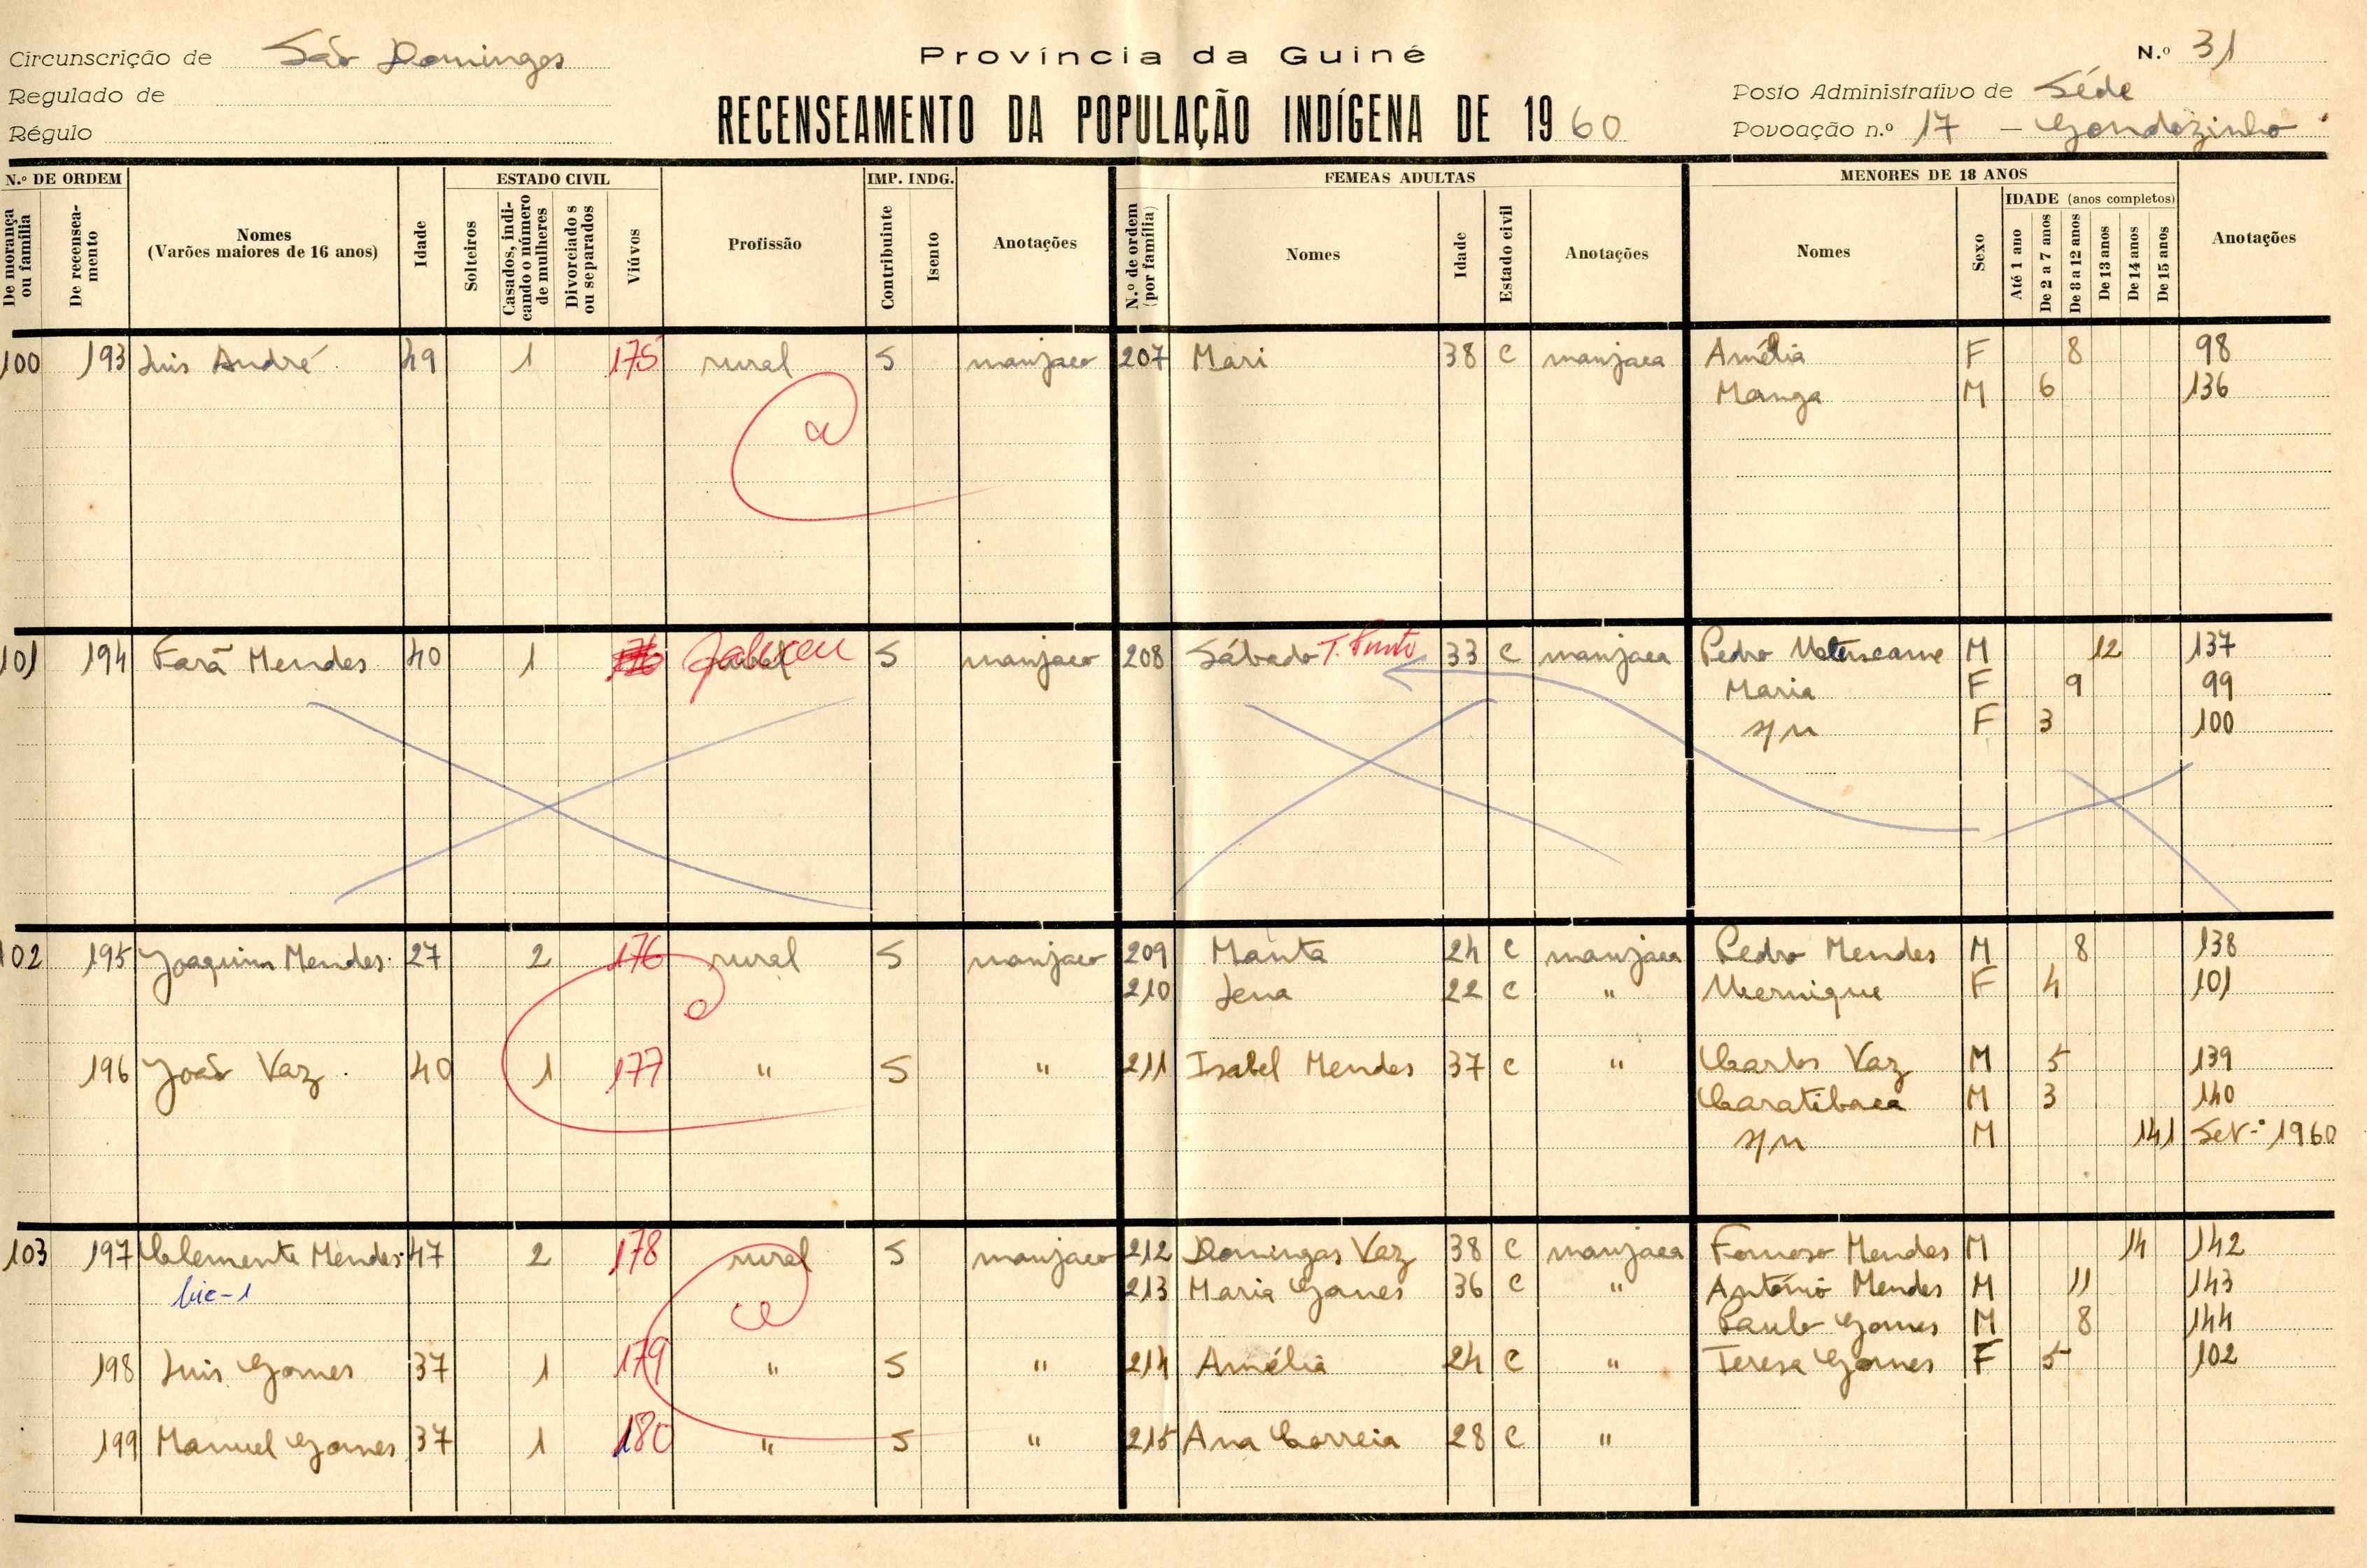 Circunscrição de São Domingos
Província da Guiné
N.º 31
Regulado de
Posto Administrativo de Séde
Régulo
RECENSEAMENTO DA POPULAÇÃO INDÍGENA DE 1960
Povoação n.º 17 - Gendozinho
N.º DE ORDEM
ESTADO CIVIL
IMP. INDG.
FEMEAS ADULTAS
MENORES DE 18 ANOS
IDADE (anos completos)
De morança ou família
De recenseamento
Nomes (Varões maiores de 16 anos)
Idade
Solteiros
Casados, indicando o número de mulheres
Divorciados ou separados
Viúvos
Profissão
Contribuinte
Isento
Anotações
N.º de ordem (por família)
Nomes
Idade
Estado civil
Anotações
Nomes
Sexo
Até 1 ano
De 2 a 7 anos
De 8 a 12 anos
De 13 anos
De 14 anos
De 15 anos
Anotações
100 193 Luis André 49 1 175 rural S manjaco 207 Mari 38 C manjaca Amélia F 8 98
Manga M 6 136
101 194 Farã Mendes 40 1 S manjaco 208 Sábado 33 C manjaca Pedro M 12 137
Maria F 9 99
s/n F 3 100
102 195 Joaquim Mendes 27 2 176 rural S manjaco 209 Manta 24 C manjaca Pedro Mendes M 8 138
210 Jena 22 C " Mernique F 4 101
196 João Vaz 40 1 177 " S " 211 Isabel Mendes 37 C " Carlos Vaz M 5 139
Caratibaca M 3 140
s/n M 141 Set.º 1960
103 197 Clemente Mendes 47 2 178 rural S manjaco 212 Domingas Vaz 38 C manjaca Formoso Mendes M 14 142
213 Maria Gomes 36 C " António Mendes M 11 143
Paulo Gomes M 8 144
198 Luis Gomes 37 1 179 " S " 214 Amélia 24 C " Teresa Gomes F 5 102
199 Manuel Gomes 37 1 180 " S " 215 Ana Correia 28 C "